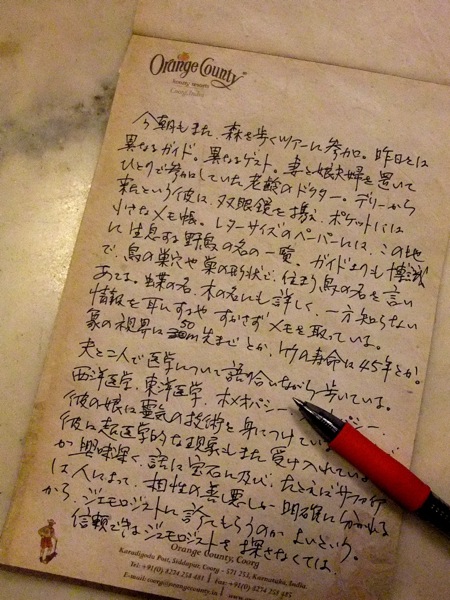 Orange County®
luxury resorts
Coorg, India
今朝もまた、森を歩くツアーに参加。昨日とは
異なるガイド。異なるゲスト。妻と娘夫婦を置いて
ひとりで参加していた老齢のドクター。デリーから
来たという彼は、双眼鏡を携え、ポケットには
小さなメモ帳。レターサイズのペーパーには、この地
に生息する野鳥の名の一覧。ガイドよりも博識
で、鳥の巣穴や巣の形状で、住まう鳥の名を言い
あてる。蝶の名、木の名にも詳しく、一方知らない
情報を耳にするや すかさずメモを取っている。
象の視界は 50m先までとか、トラの寿命は45年とか。
夫と二人で医学について語り合いながら歩いている。
西洋医学、東洋医学、ホメオパシー
彼の娘は霊気の技術を身につけている
彼は超医学的な現象もまた受け入れている
か興味深く、話は宝石に及び、たとえばサファイヤ
は人によって、相性の善悪が明確に分かれる
から、ジェモロジストに診てもらうのがよいという。
信頼できるジェモロジストを探さなくては。
Orange County, Coorg
Karadigodu Post, Siddapur, Coorg - 571 253, Karnataka, India.
Tel: +91(0) 8274 258 481 | Fax: +91(0) 8274 258 485
E-mail: coorg@orangecounty.in | www.